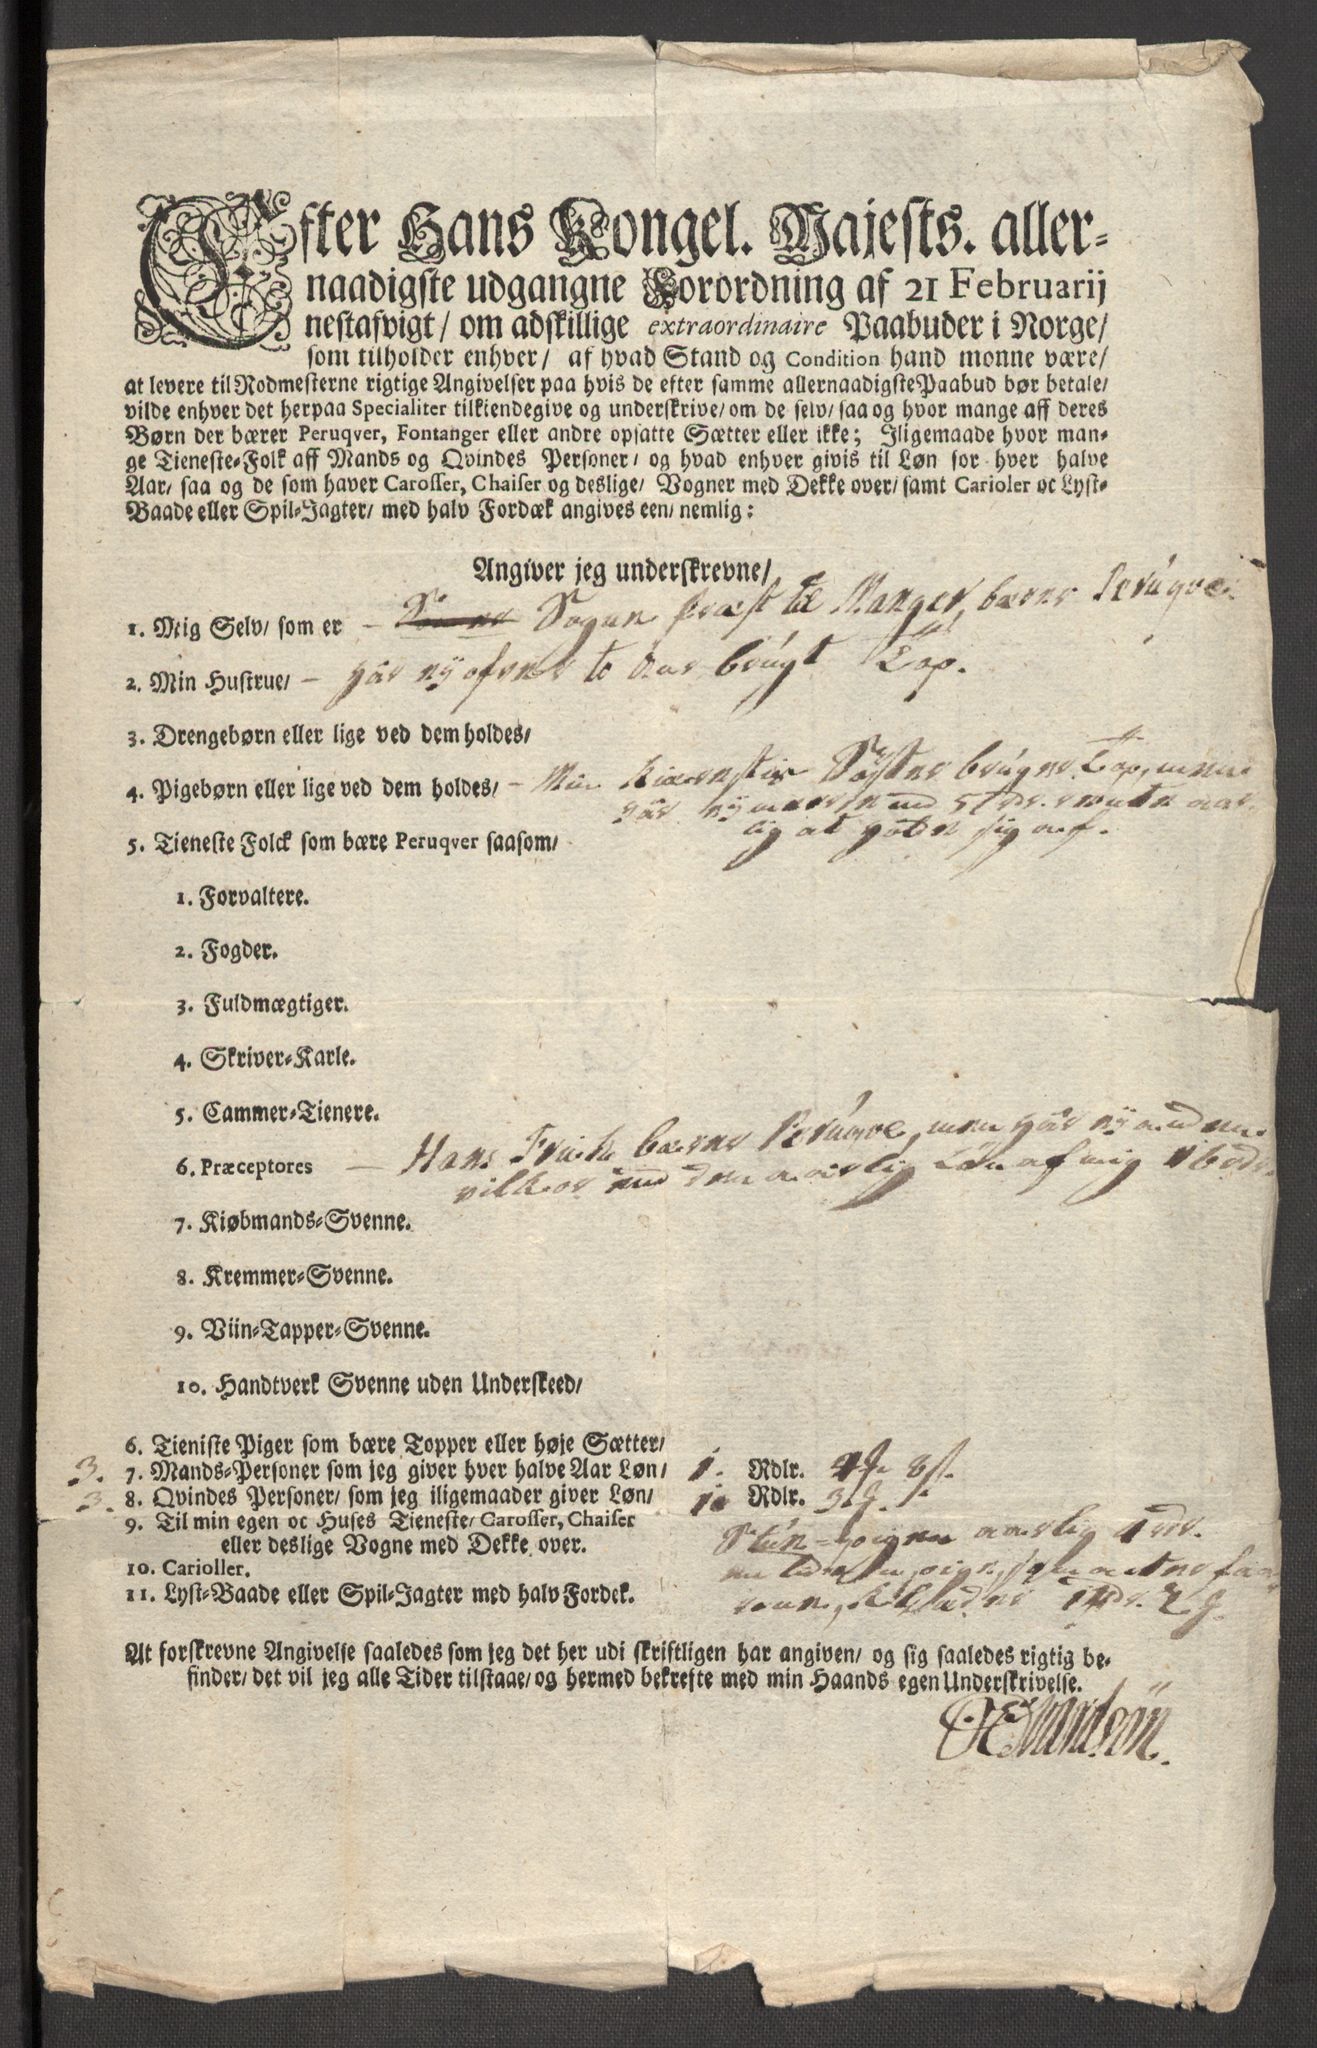 Efter Hans Kongel. Majests. aller-
naadigste udgangne Forordning af 21 Februarij
nestafvigt/ om adskillige extraordinaire Paabuder i Norge/
som tilholder enhver/ af hvad Stand og Condition hand monne være/
at levere til Rodmesterne rigtige Angivelser paa hvis de efter samme allernaadigste Paabud bør betale/
vilde enhver det herpaa Specialiter tilkiendegive og underskrive/ om de selv/ saa og hvor mange aff deres
Børn der bærer Peruqver, Fontanger eller andre opsatte Sætter eller ikke; Iligemaade hvor man-
ge Tieneste-Folk aff Mands og Qvindes Personer/ og hvad enhver givis til Løn for hver halve
Aar/ saa og de som haver Carosser, Chaiser og deslige/ Vogner med Dekke over/ samt Carioler oc Lyst-
Baade eller Spil-Jagter/ med halv Fordæk angives een/ nemlig:
Angiver jeg underskrevne/
1. Mig Selv/ som er – Sogne præst til Manger, bærer Perúqve
2. Min Hustrue/ – har to Aar brúgt Top.
3. Drengebørn eller lige ved dem holdes/
4. Pigebørn eller lige ved dem holdes/ – Min Søster brúger Top, men
har
lig at sig af.
5. Tieneste Folck som bære Peruqver saasom/
1. Forvaltere.
2. Fogder.
3. Fuldmægtiger.
4. Skriver-Karle.
5. Cammer-Tienere.
6. Præceptores – Hans Frich bærer Perúqve, men har
vilkor end den aarlig Løn af mig 16 rdr.
7. Kiøbmands-Svenne.
8. Kremmer-Svenne.
9. Viin-Tapper-Svenne.
10. Handtverk Svenne uden Underskeed/
6. Tieniste Piger som bære Topper eller høje Sætter/
3. 7. Mands-Personer som jeg giver hver halve Aar Løn/ 1. Rdlr. 8 s.
3. 8. Qvindes Personer/ som jeg iligemaader giver Løn/ 1. Rdlr. 3
9. Til min egen oc Huses Tieneste/ Carosser, Chaiser aarlig
eller deslige Vogne med Dekke over.
10. Carioller.
11. Lyst-Baade eller Spil-Jagter med halv Fordek.
At forskrevne Angivelse saaledes som jeg det her udi skriftligen har angiven/ og sig saaledes rigtig be-
finder/ det vil jeg alle Tider tilstaae/ og hermed bekrefte med min Haands egen Underskrivelse.